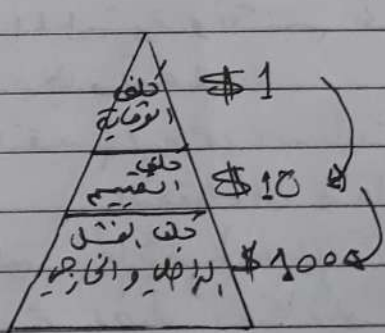 كلف
الوقاية
$1
كلف
التقييم
$10
كلف الفشل
الداخلي والخارجي
$100